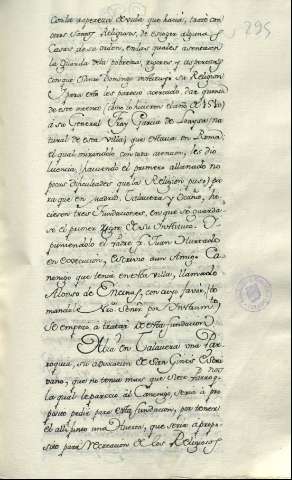 295
Con la aspereza de vida que hacia, trató con
otros Santos Religiosos, de escoger algunas
Casas de su orden, en las quales asentasen
la Guarda de la pobreza, rigores y asperezas
con que Santo Domingo instituyó su Religion
y para esto les pareció acercado dar quenta
de este intento (como lo hicieron el año de 1520)
á su General Fray Garcia de Loaysa (na
tural de esta Villa) que estaba en Roma
el qual mirandolo con toda atencion, les dió
licencia, (haviendo el primero allanado no
pocas dificultades que la Religion puso) pa
ra que en Madrid, Talavera y Ocaña, hi
ciesen tres Fundaciones, en que se guarda
se el primer rigor de su Instituto. Y
poniendolo el Padre Fr. Juan Hurtado
en execucion, escrivió a un Amigo Ca
nonigo que tenia en esta Villa, llamado
Alonso de Encinas, con cuyo favor, (to
mandole Ntro. Señor por Instrumto.)
se empezó a tratar de esta fundacion.
Havia en Talavera una Par
roquia, su advocacion de San Gines
que no tenia mas que siete Parroqnos
la qual le pareció al Canonigo, seria á pro
posito pedir para esta fundacion, por tener
el alli junto una Huerta, que seria á propo
sito para recreacion de los Religiosos